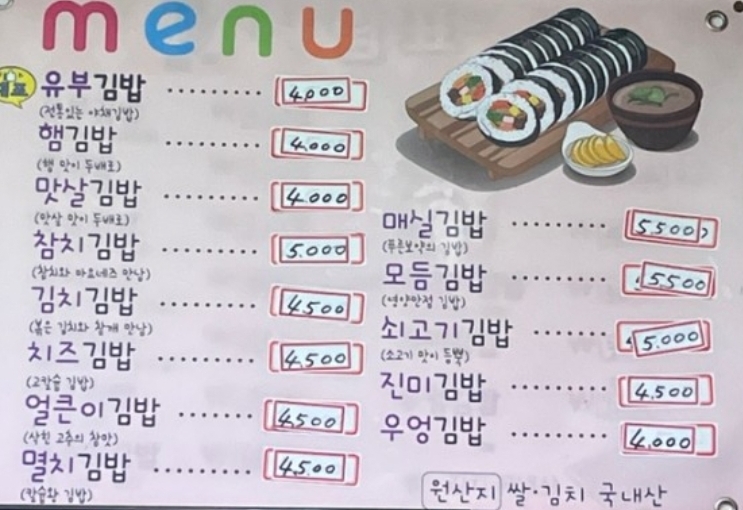 menu
유부김밥 ·········· 4,000
(전통있는 야채김밥)
햄김밥 ·········· 4.000
(햄 맛이 두배로)
맛살김밥 ·········· 4.000
(맛살 맛이 두배로)
참치김밥 ·········· 5.000
(참치와 마요네즈 만남)
김치김밥 ·········· 4500
(볶은 김치와 참깨 만남)
치즈김밥 ·········· 4,500
(고칼슘 김밥)
얼큰이김밥 ········ 4500
(삭힌 고추의 참맛)
멸치김밥 ·········· 4.500
(칼슘왕 김밥)
매실김밥 ·········· 5500
(푸른보약의 김밥)
모듬김밥 ·········· 5500
(영양만점 김밥)
쇠고기김밥 ········ 5.000
(소고기 맛이 듬뿍)
진미김밥 ·········· 4,500
우엉김밥 ·········· 4,000
원산지 쌀·김치 국내산